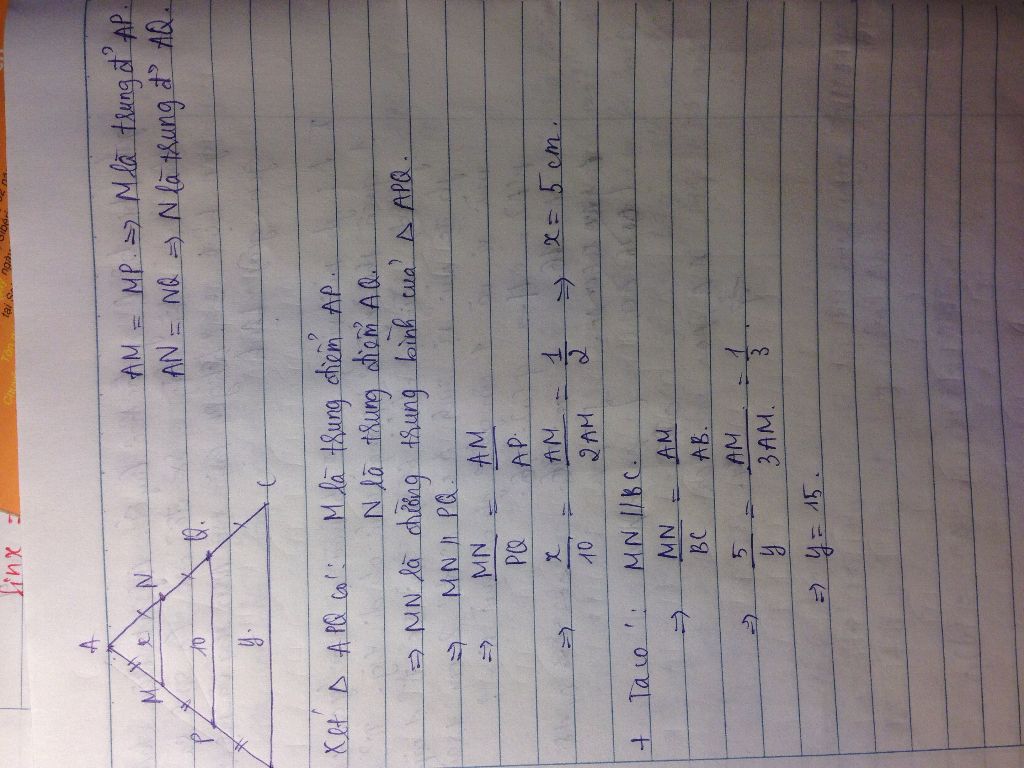 sinx =
AM = MP. => M là trung đ' AP.
AN = NQ => N là trung đ' AQ.
A
M x N
P 10 Q.
y. C
Xét Δ APQ có: M là trung điểm AP.
N là trung điểm AQ.
=> MN là đường trung bình của Δ APQ.
=> MN // PQ.
=> MN/PQ = AM/AP
=> x/10 = AM/2AM = 1/2 => x = 5 cm.
+ Ta có: MN // BC.
=> MN/BC = AM/AB.
=> 5/y = AM/3AM. = 1/3.
=> y = 15.